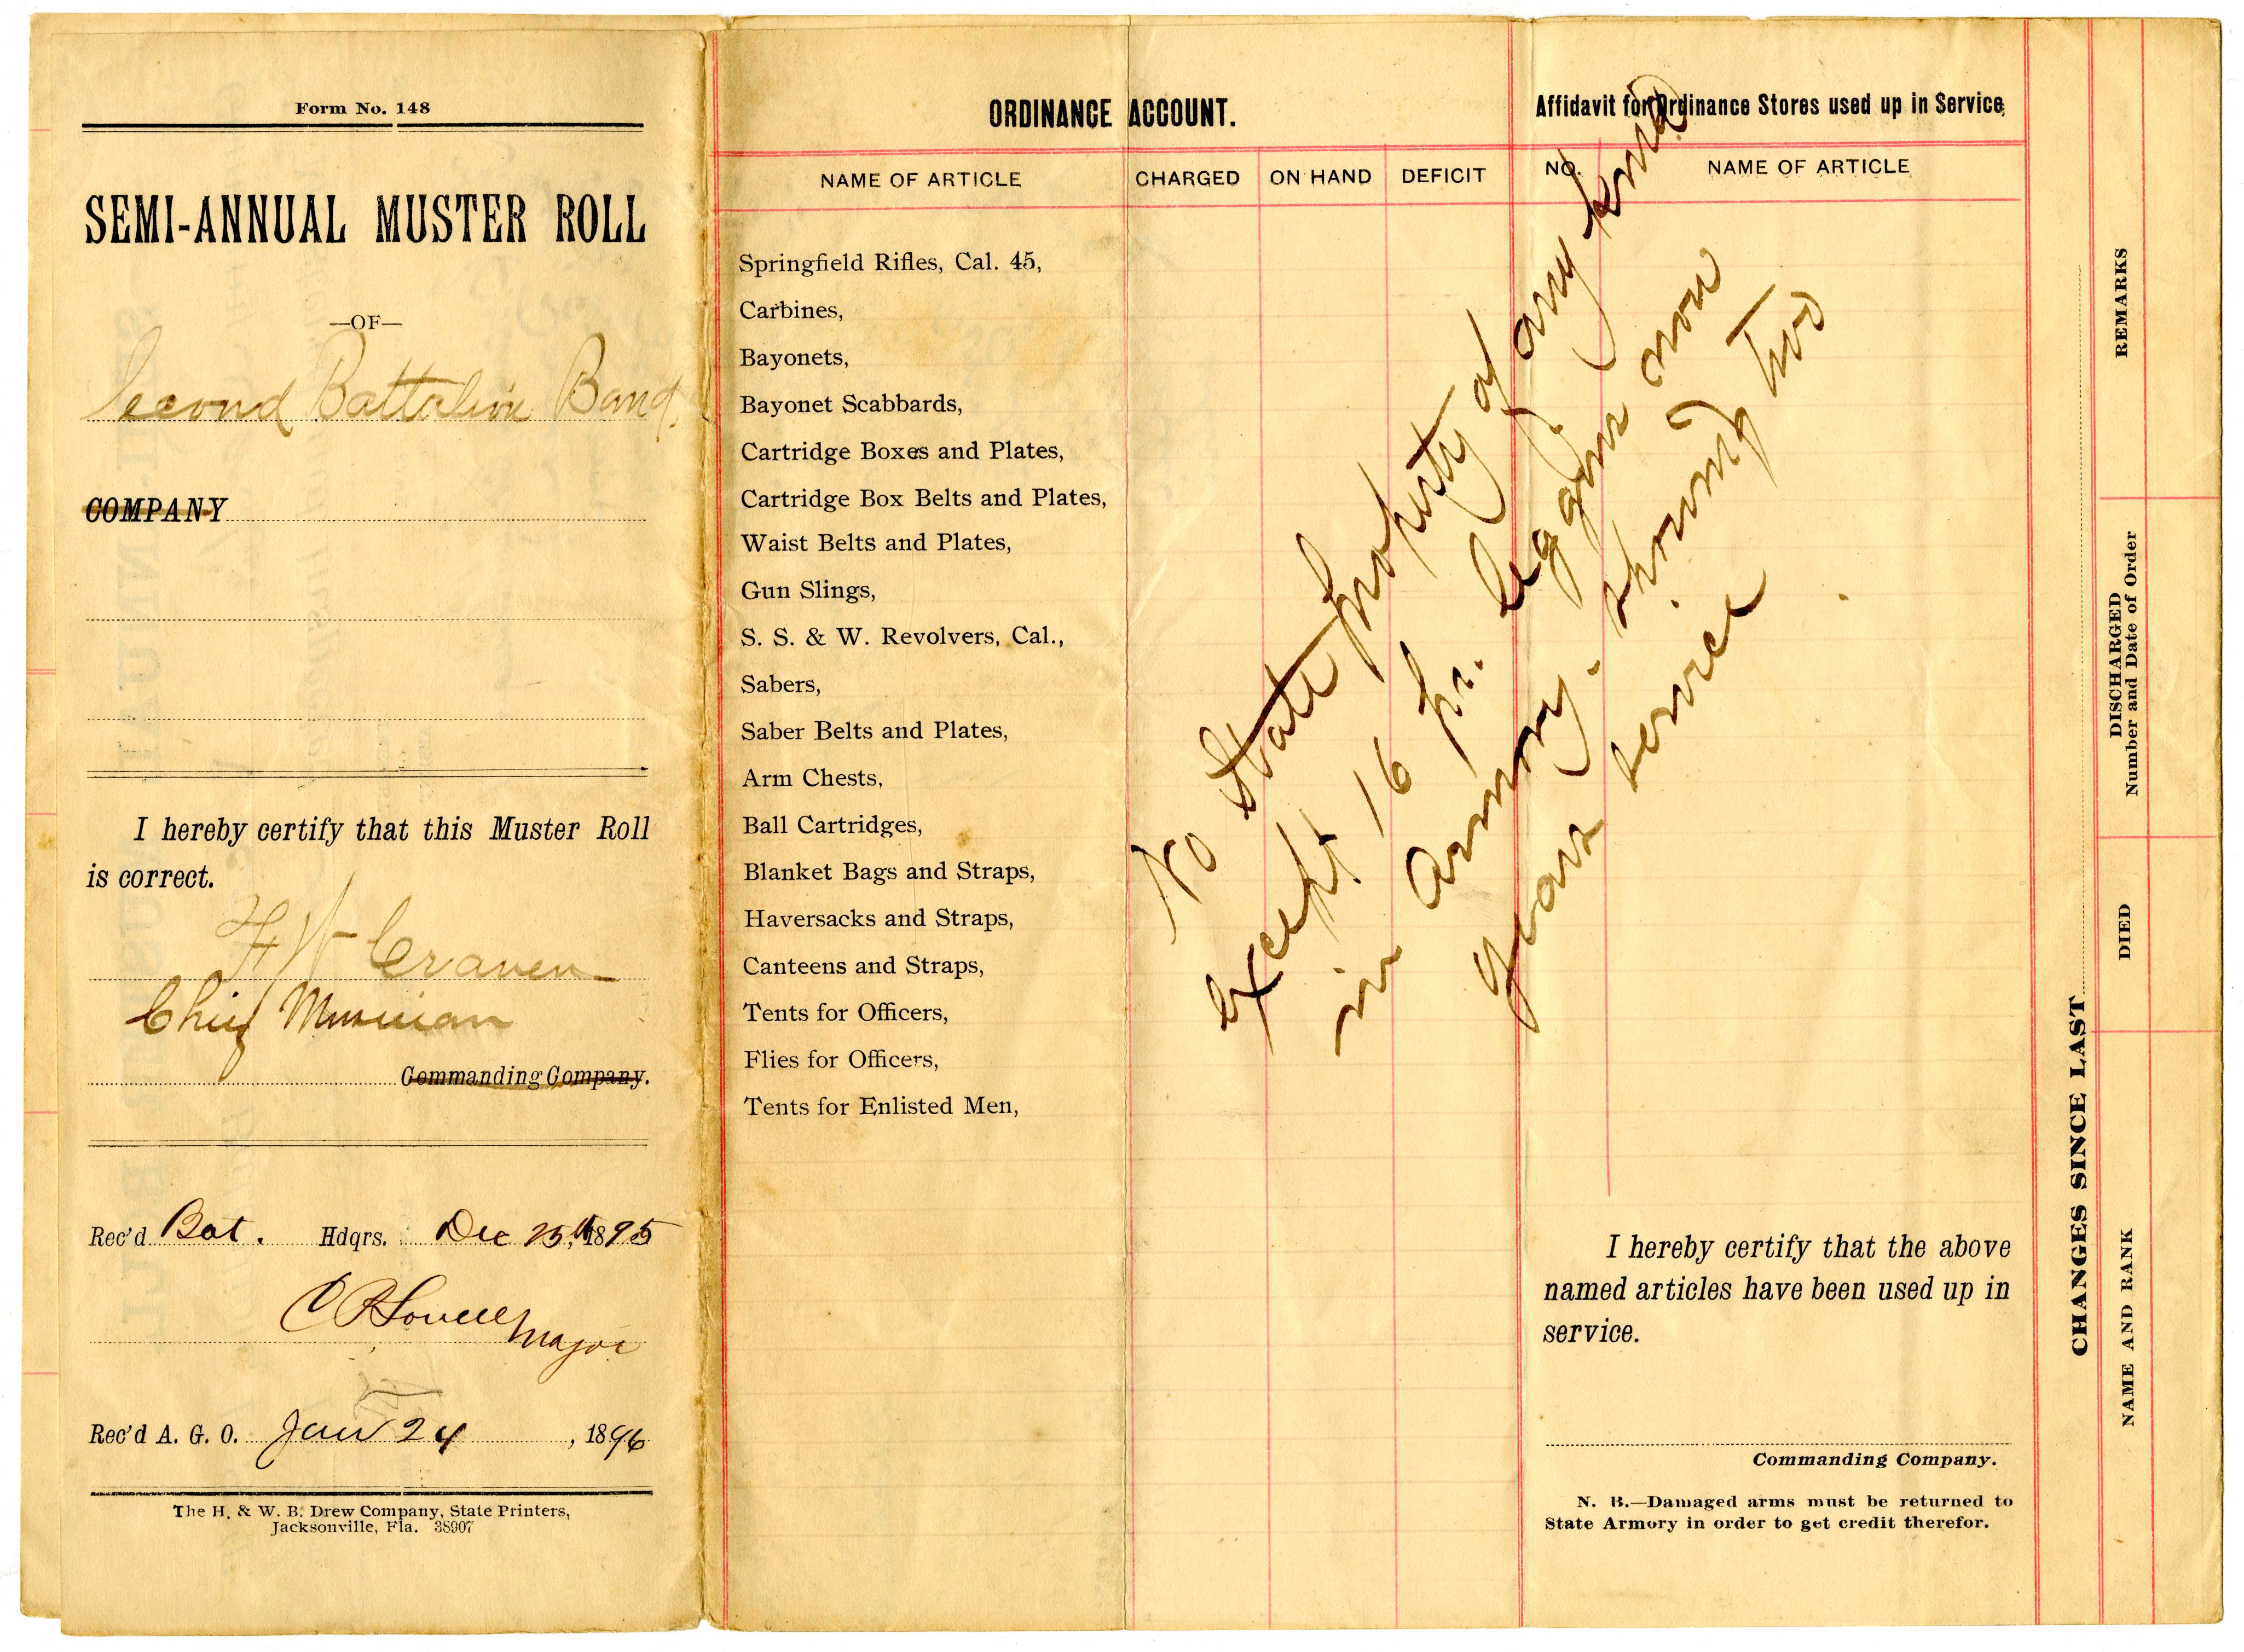 Form No. 148
SEMI-ANNUAL MUSTER ROLL
—OF—
Second Battalion Band.
COMPANY
I hereby certify that this Muster Roll
is correct.
F W Craven
Chief Musician
Commanding Company.
Rec'd Bat. Hdqrs. Dec 25th, 1895
C P Lovell
Major
Rec'd A. G. O. Jan 24, 1896
The H. & W. B. Drew Company, State Printers,
Jacksonville, Fla. 38907
ORDINANCE ACCOUNT.
NAME OF ARTICLE CHARGED ON HAND DEFICIT
Springfield Rifles, Cal. 45,
Carbines,
Bayonets,
Bayonet Scabbards,
Cartridge Boxes and Plates,
Cartridge Box Belts and Plates,
Waist Belts and Plates,
Gun Slings,
S. S. & W. Revolvers, Cal.,
Sabers,
Saber Belts and Plates,
Arm Chests,
Ball Cartridges,
Blanket Bags and Straps,
Haversacks and Straps,
Canteens and Straps,
Tents for Officers,
Flies for Officers,
Tents for Enlisted Men,
No State property of any kind
except 16 pr. leggins now
in Armory. showing two
years service
Affidavit for Ordinance Stores used up in Service
NO. NAME OF ARTICLE
I hereby certify that the above
named articles have been used up in
service.
Commanding Company.
N. B.—Damaged arms must be returned to
State Armory in order to get credit therefor.
CHANGES SINCE LAST
NAME AND RANK
DIED
DISCHARGED
Number and Date of Order
REMARKS